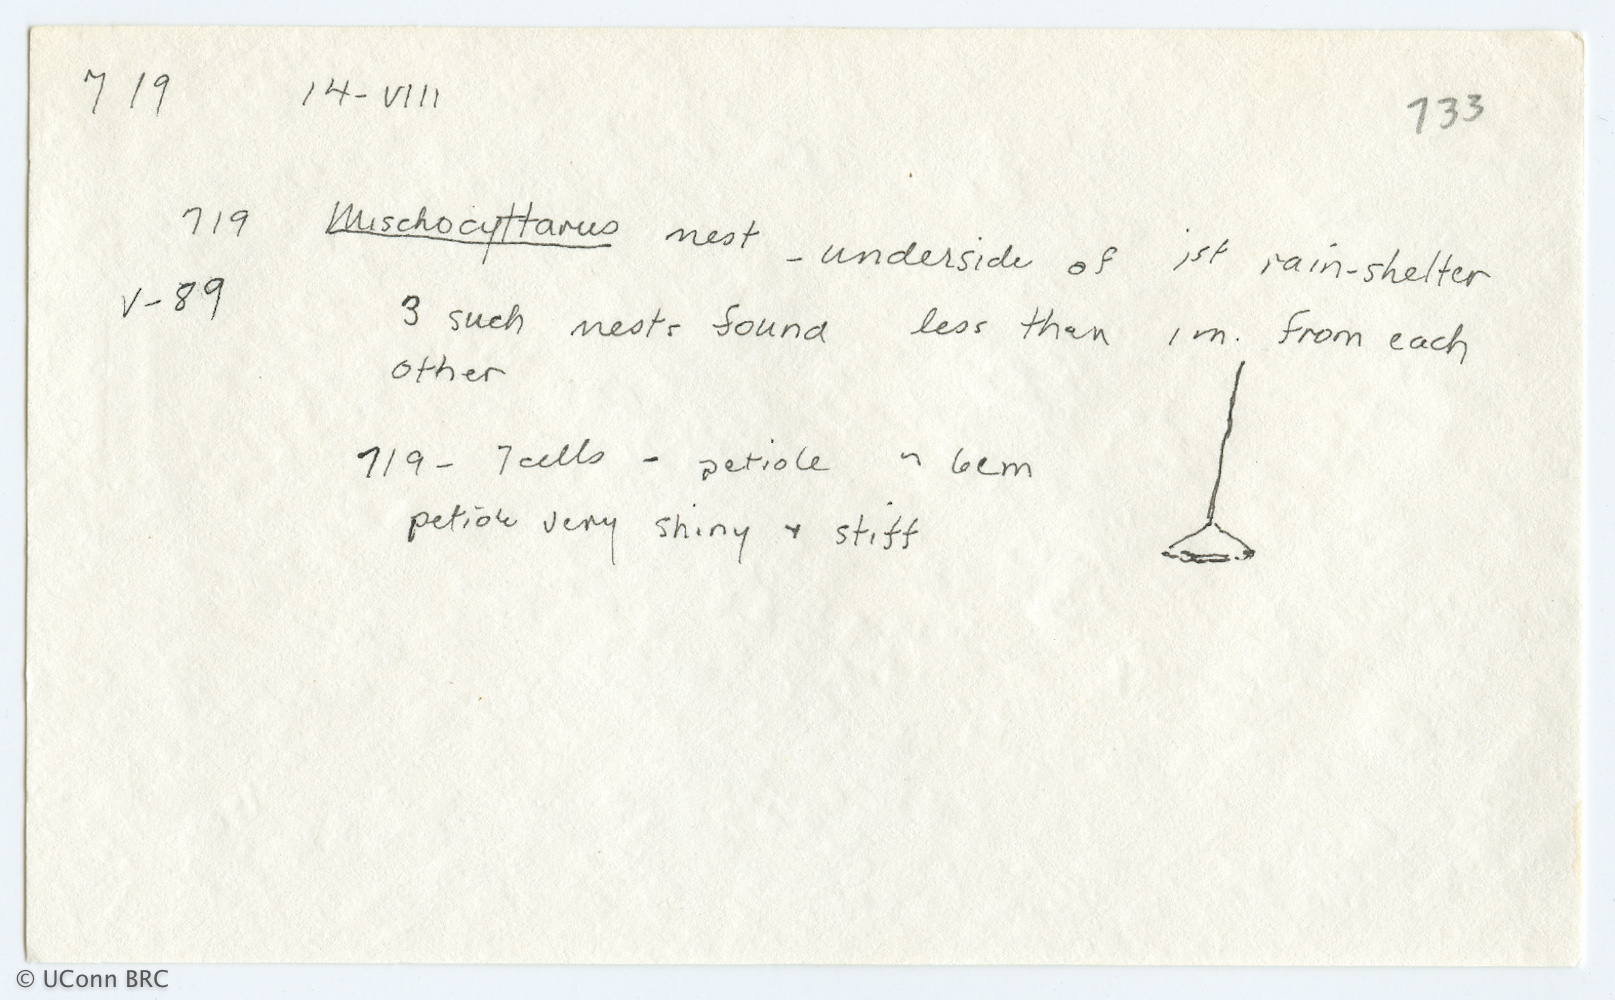 719 14-VIII 733
719 Mischocyttarus nest - underside of 1st rain-shelter
V-89 3 such nests found less than 1 m. from each
other
719 - 7 cells - petiole ~ 6cm
petiole very shiny + stiff
© UConn BRC